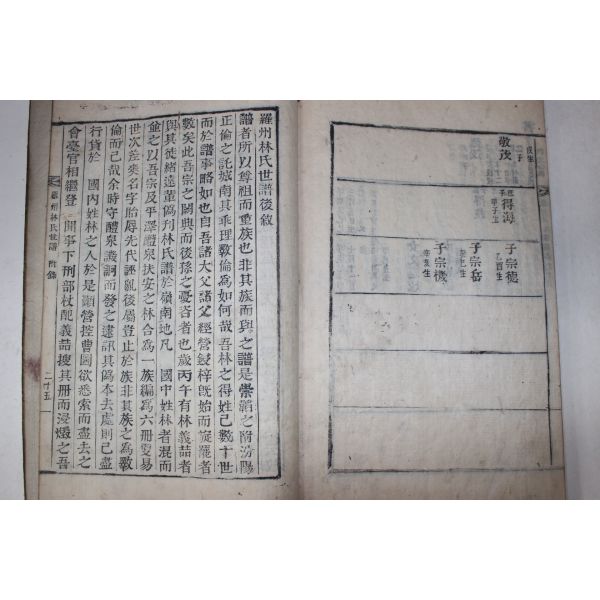 敬茂
系 得海
子 甲子生
子宗稷
乙酉生
子宗岳
子宗機
羅州林氏世譜後敘
譜者所以尊祖而重族也非其族而與之譜是崇韜之附汾陽
正倫之託城南其乖理斁倫爲如何哉吾林之得姓己數十世
而於譜事略如也自吾諸大父諸父經營鋟梓旣始而旋罷者
數矣此吾宗之闕典而後孫之憂吝者也歲丙午有林義喆者
與其徒緖達輩僞刋林氏譜於嶺南地凡 國中姓林者混而
並之以吾宗及平澤醴泉扶安之林合爲一族編爲六冊變易
世次差爽名字貽辱先代誣亂後屬登止於族非其族之爲斁
倫而己哉余時守醴泉譏詗而發之逮訊其僞本去處則己盡
行貨於 國內姓林之人於是顯營控曹圖欲悉索而盡去之
會臺官相繼登 聞事下刑部杖配義喆搜其冊而浸燬之吾
羅州林氏世譜 附錄
二十五